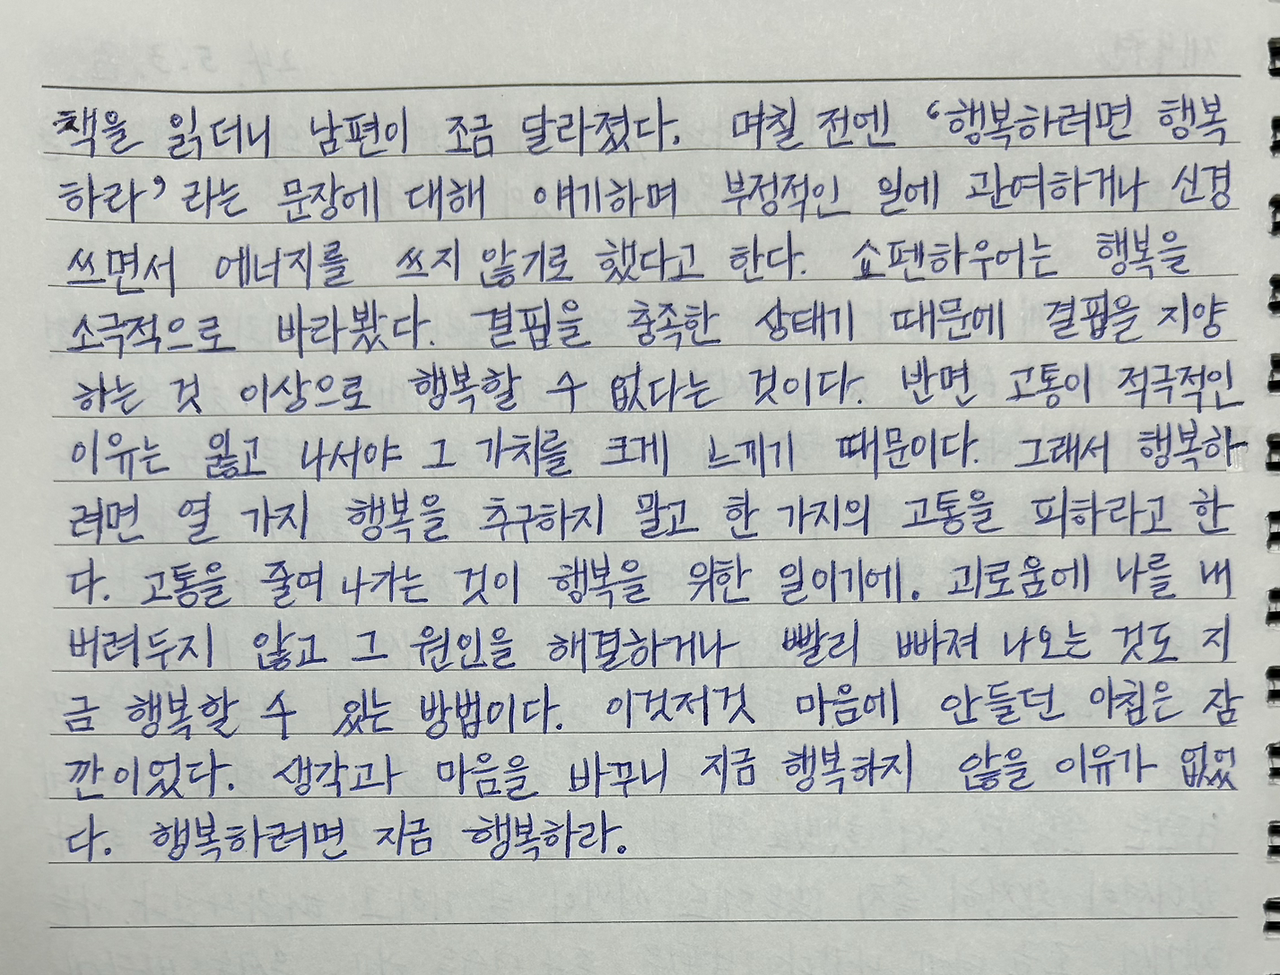 책을 읽더니 남편이 조금 달라졌다. 며칠 전엔 '행복하려면 행복
하라' 라는 문장에 대해 얘기하며 부정적인 일에 관여하거나 신경
쓰면서 에너지를 쓰지 않기로 했다고 한다. 쇼펜하우어는 행복을
소극적으로 바라봤다. 결핍을 충족한 상태기 때문에 결핍을 지양
하는 것 이상으로 행복할 수 없다는 것이다. 반면 고통이 적극적인
이유는 잃고 나서야 그 가치를 크게 느끼기 때문이다. 그래서 행복하
려면 열 가지 행복을 추구하지 말고 한 가지의 고통을 피하라고 한
다. 고통을 줄여 나가는 것이 행복을 위한 일이기에. 괴로움에 나를 내
버려두지 않고 그 원인을 해결하거나 빨리 빠져 나오는 것도 지
금 행복할 수 있는 방법이다. 이것저것 마음에 안들던 아침은 잠
깐이었다. 생각과 마음을 바꾸니 지금 행복하지 않을 이유가 없었
다. 행복하려면 지금 행복하라.